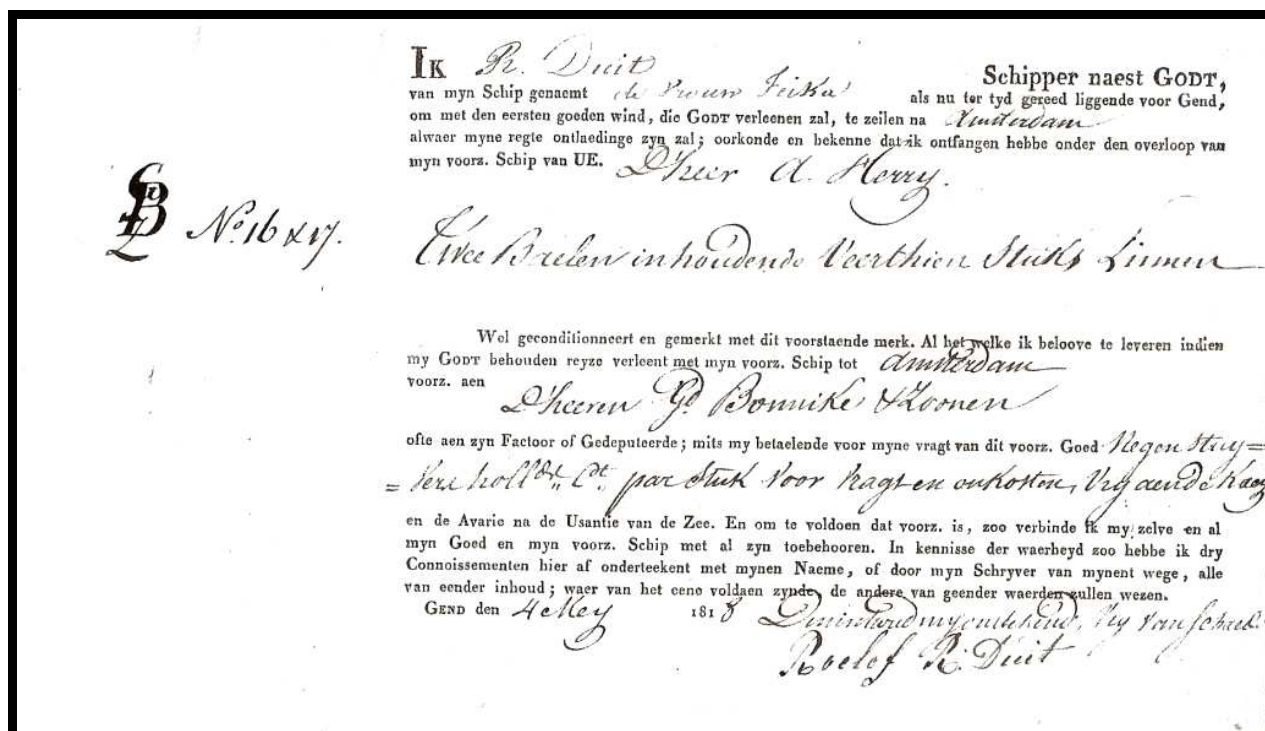 IK R. Duit Schipper naest GODT,
van myn Schip genaemt de Vrouw Feika als nu ter tyd gereed liggende voor Gend,
om met den eersten goeden wind, die GODT verleenen zal, te zeilen na Amsterdam
alwaer myne regte ontlaedinge zyn zal; oorkonde en bekenne dat ik ontfangen hebbe onder den overloop van
myn voorz. Schip van UE. D'heer A. Herry.
No. 16 & 17. Twee Baelen inhoudende Veerthien Stuks Linnen
Wel geconditionneert en gemerkt met dit voorstaende merk. Al het welke ik beloove te leveren indien
my GODT behouden reyze verleent met myn voorz. Schip tot Amsterdam
voorz. aen
D'heeren Gd. Bonnike & Zoonen
ofte aen zyn Factoor of Gedeputeerde; mits my betaelende voor myne vragt van dit voorz. Goed Negen Stuy=
=vers holl. Ct. par Stuk voor vragt en onkosten, vry aen de Kaey
en de Avarie na de Usantie van de Zee. En om te voldoen dat voorz. is, zoo verbinde ik my zelve en al
myn Goed en myn voorz. Schip met al zyn toebehooren. In kennisse der waerheyd zoo hebbe ik dry
Connoissementen hier af onderteekent met mynen Naeme, of door myn Schryver van mynent wege, alle
van eender inhoud; waer van het eene voldaen zynde, de andere van geender waerden zullen wezen.
GEND den 4 Mey 1818 Den inhoud my onbekend, Vry van Schade
Roelof R. Duit